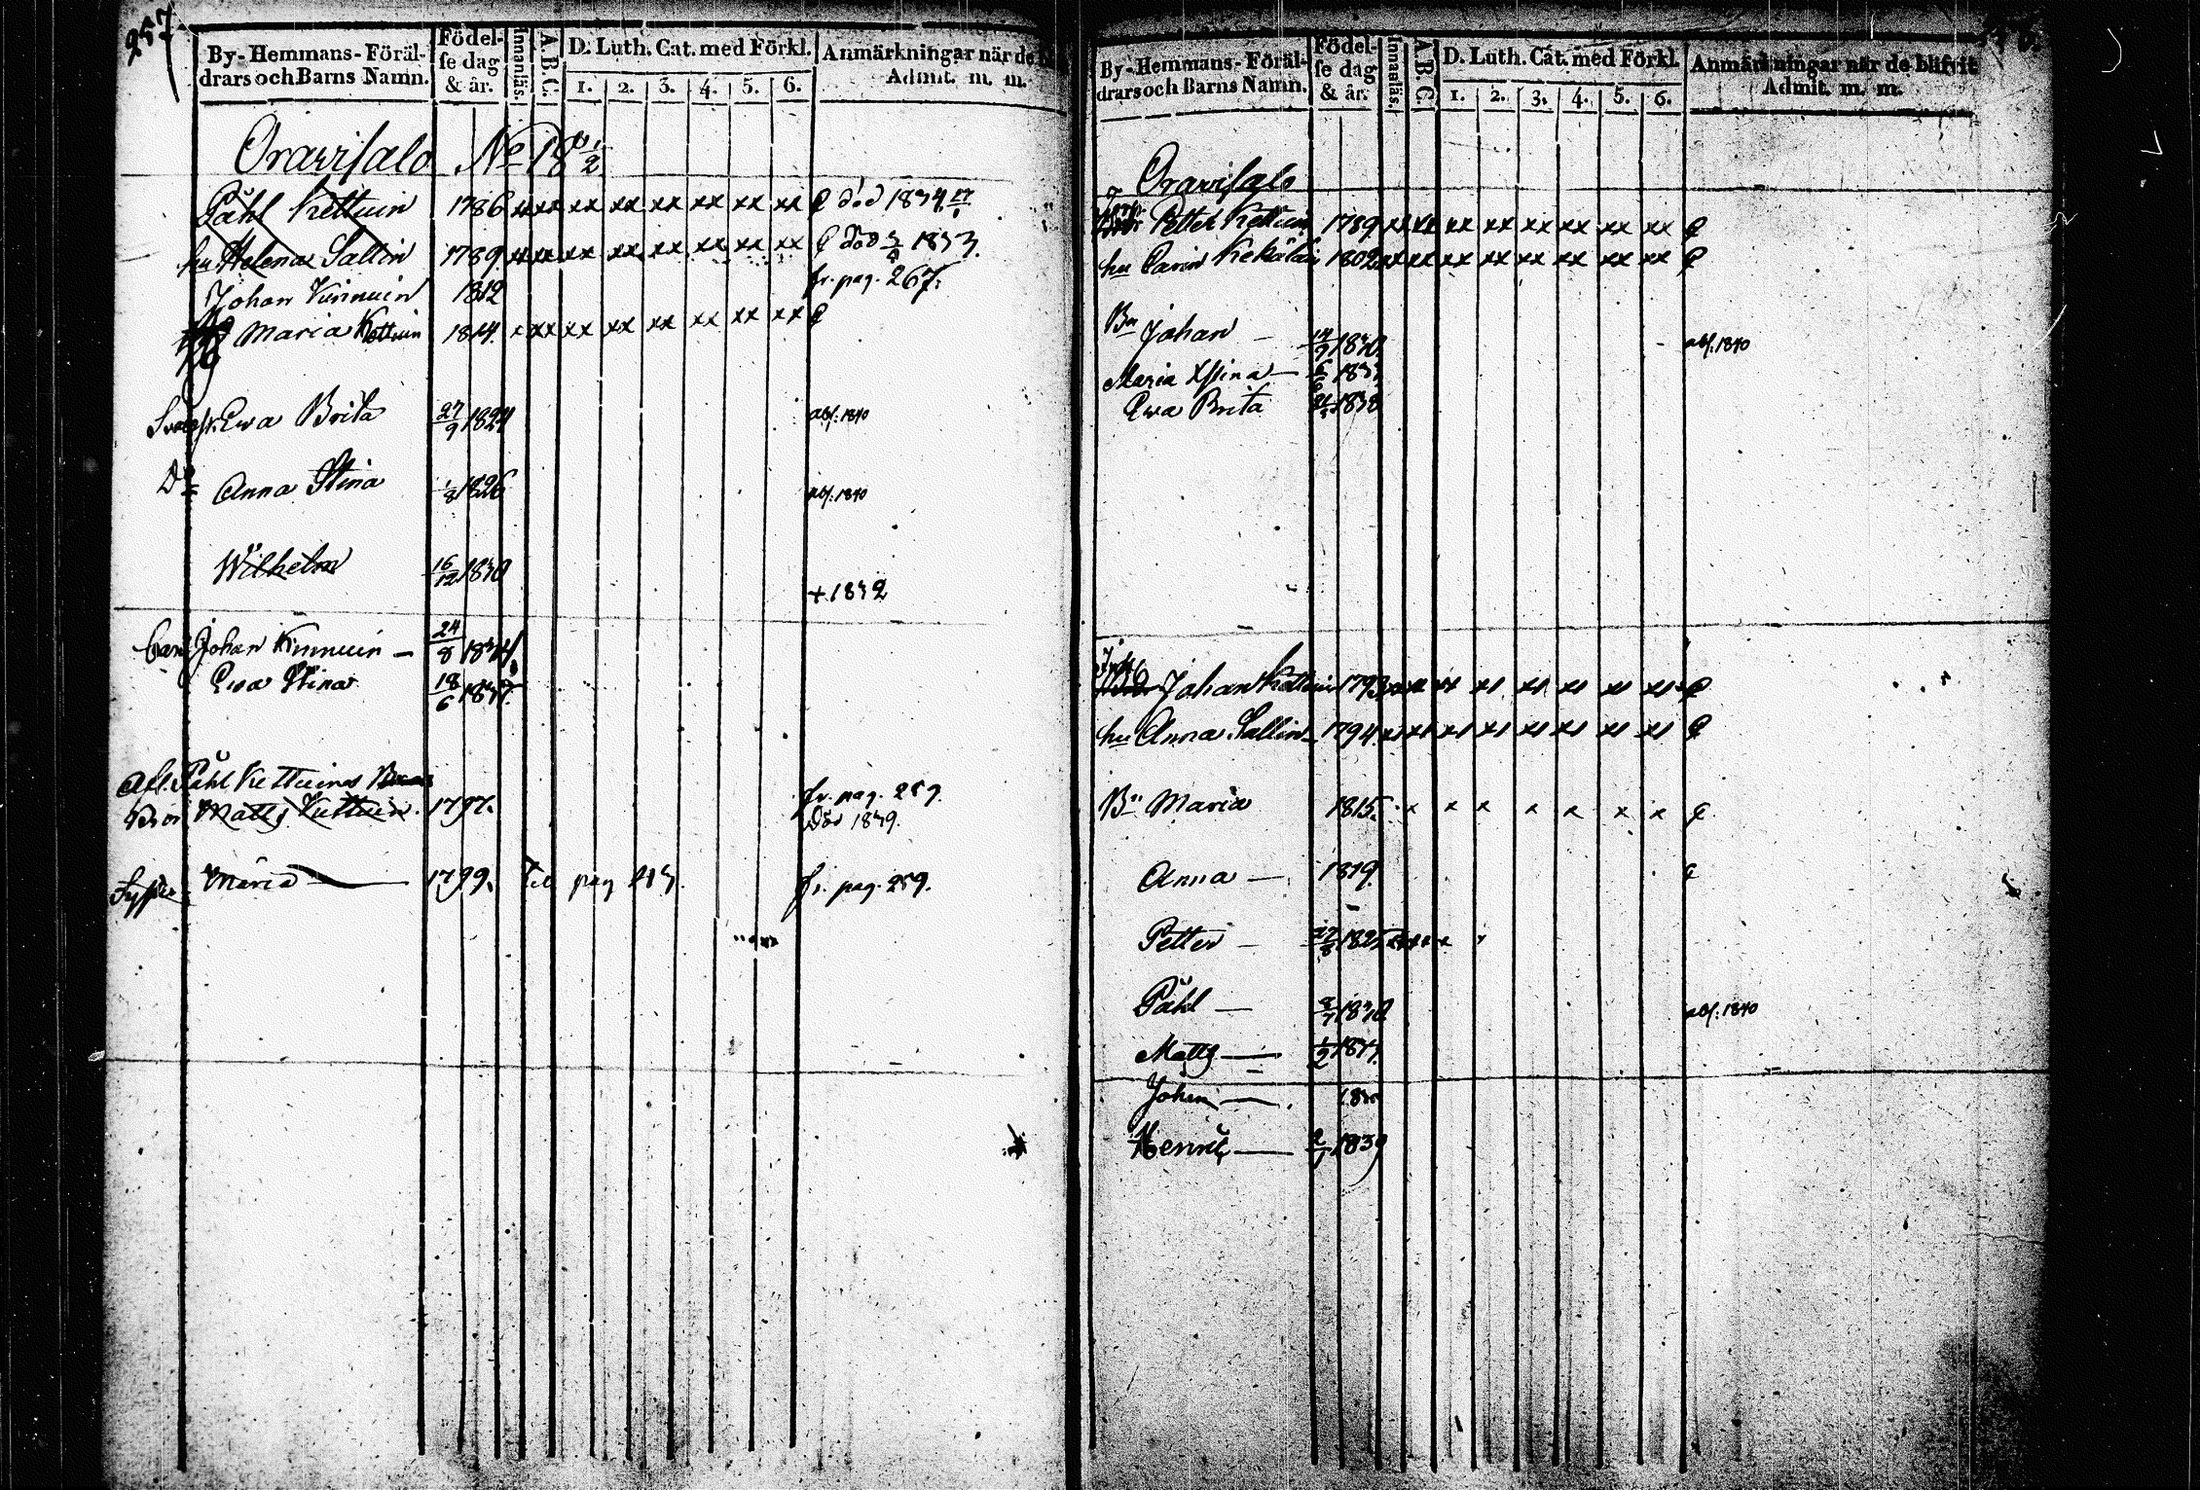 257.
By- Hemmans- Föräl-
drars och Barns Namn.
Födel-
se dag
& år.
Innanläs.
A.B.C.
D. Luth. Cat. med Förkl.
1. 2. 3. 4. 5. 6.
Anmärkningar när de
Admit. m. m.
Oravisalo No 18
Påhl Kettuin 1786 xx xx xx xx xx xx xx xx död 1834
hu Helena Sallin 1789 xx xx xx xx xx xx xx xx död 1833
Johan Kinnuin 1812 fr. pag. 267.
Maria Kettuin 1814. x xx xx xx xx xx xx xx
Ewa Brita 27/9 1824 abs. 1840
Do Anna Stina 1/8 1826 abs. 1840
Wilhelm 16/12 1830 + 1832
barn Johan Kinnuin — 24/8 1834
Ewa Stina 18/6 1837.
Afl. Påhl Kettuins
Bror Matts Kettuin. 1797. fr. pag. 259.
Död 1839.
Maria — 1799. fr. pag. 259.
By- Hemmans- Föräl-
drars och Barns Namn.
Födel-
se dag
& år.
Innanläs.
A.B.C.
D. Luth. Cat. med Förkl.
1. 2. 3. 4. 5. 6.
Anmärkningar när de blifvit
Admit. m. m.
Oravisalo
Petter Kettuin 1789 xx xx xx xx xx xx xx xx
hu Carin Kekäläin 1802 xx xx xx xx xx xx xx xx
Bn Johan — 1830 abs. 1840
Maria Stina —
Ewa Brita 1838
Johan Kettuin 1793 xx xx xx xx xx xx xx xx
hu Anna Sallin 1794. xx xx xx xx xx xx xx xx
Bn Maria 1815. x x x x x x x
Anna — 1819.
Petter — 1825
Påhl — 1830 abs. 1840
Matts —
Johan —
Henric — 1839